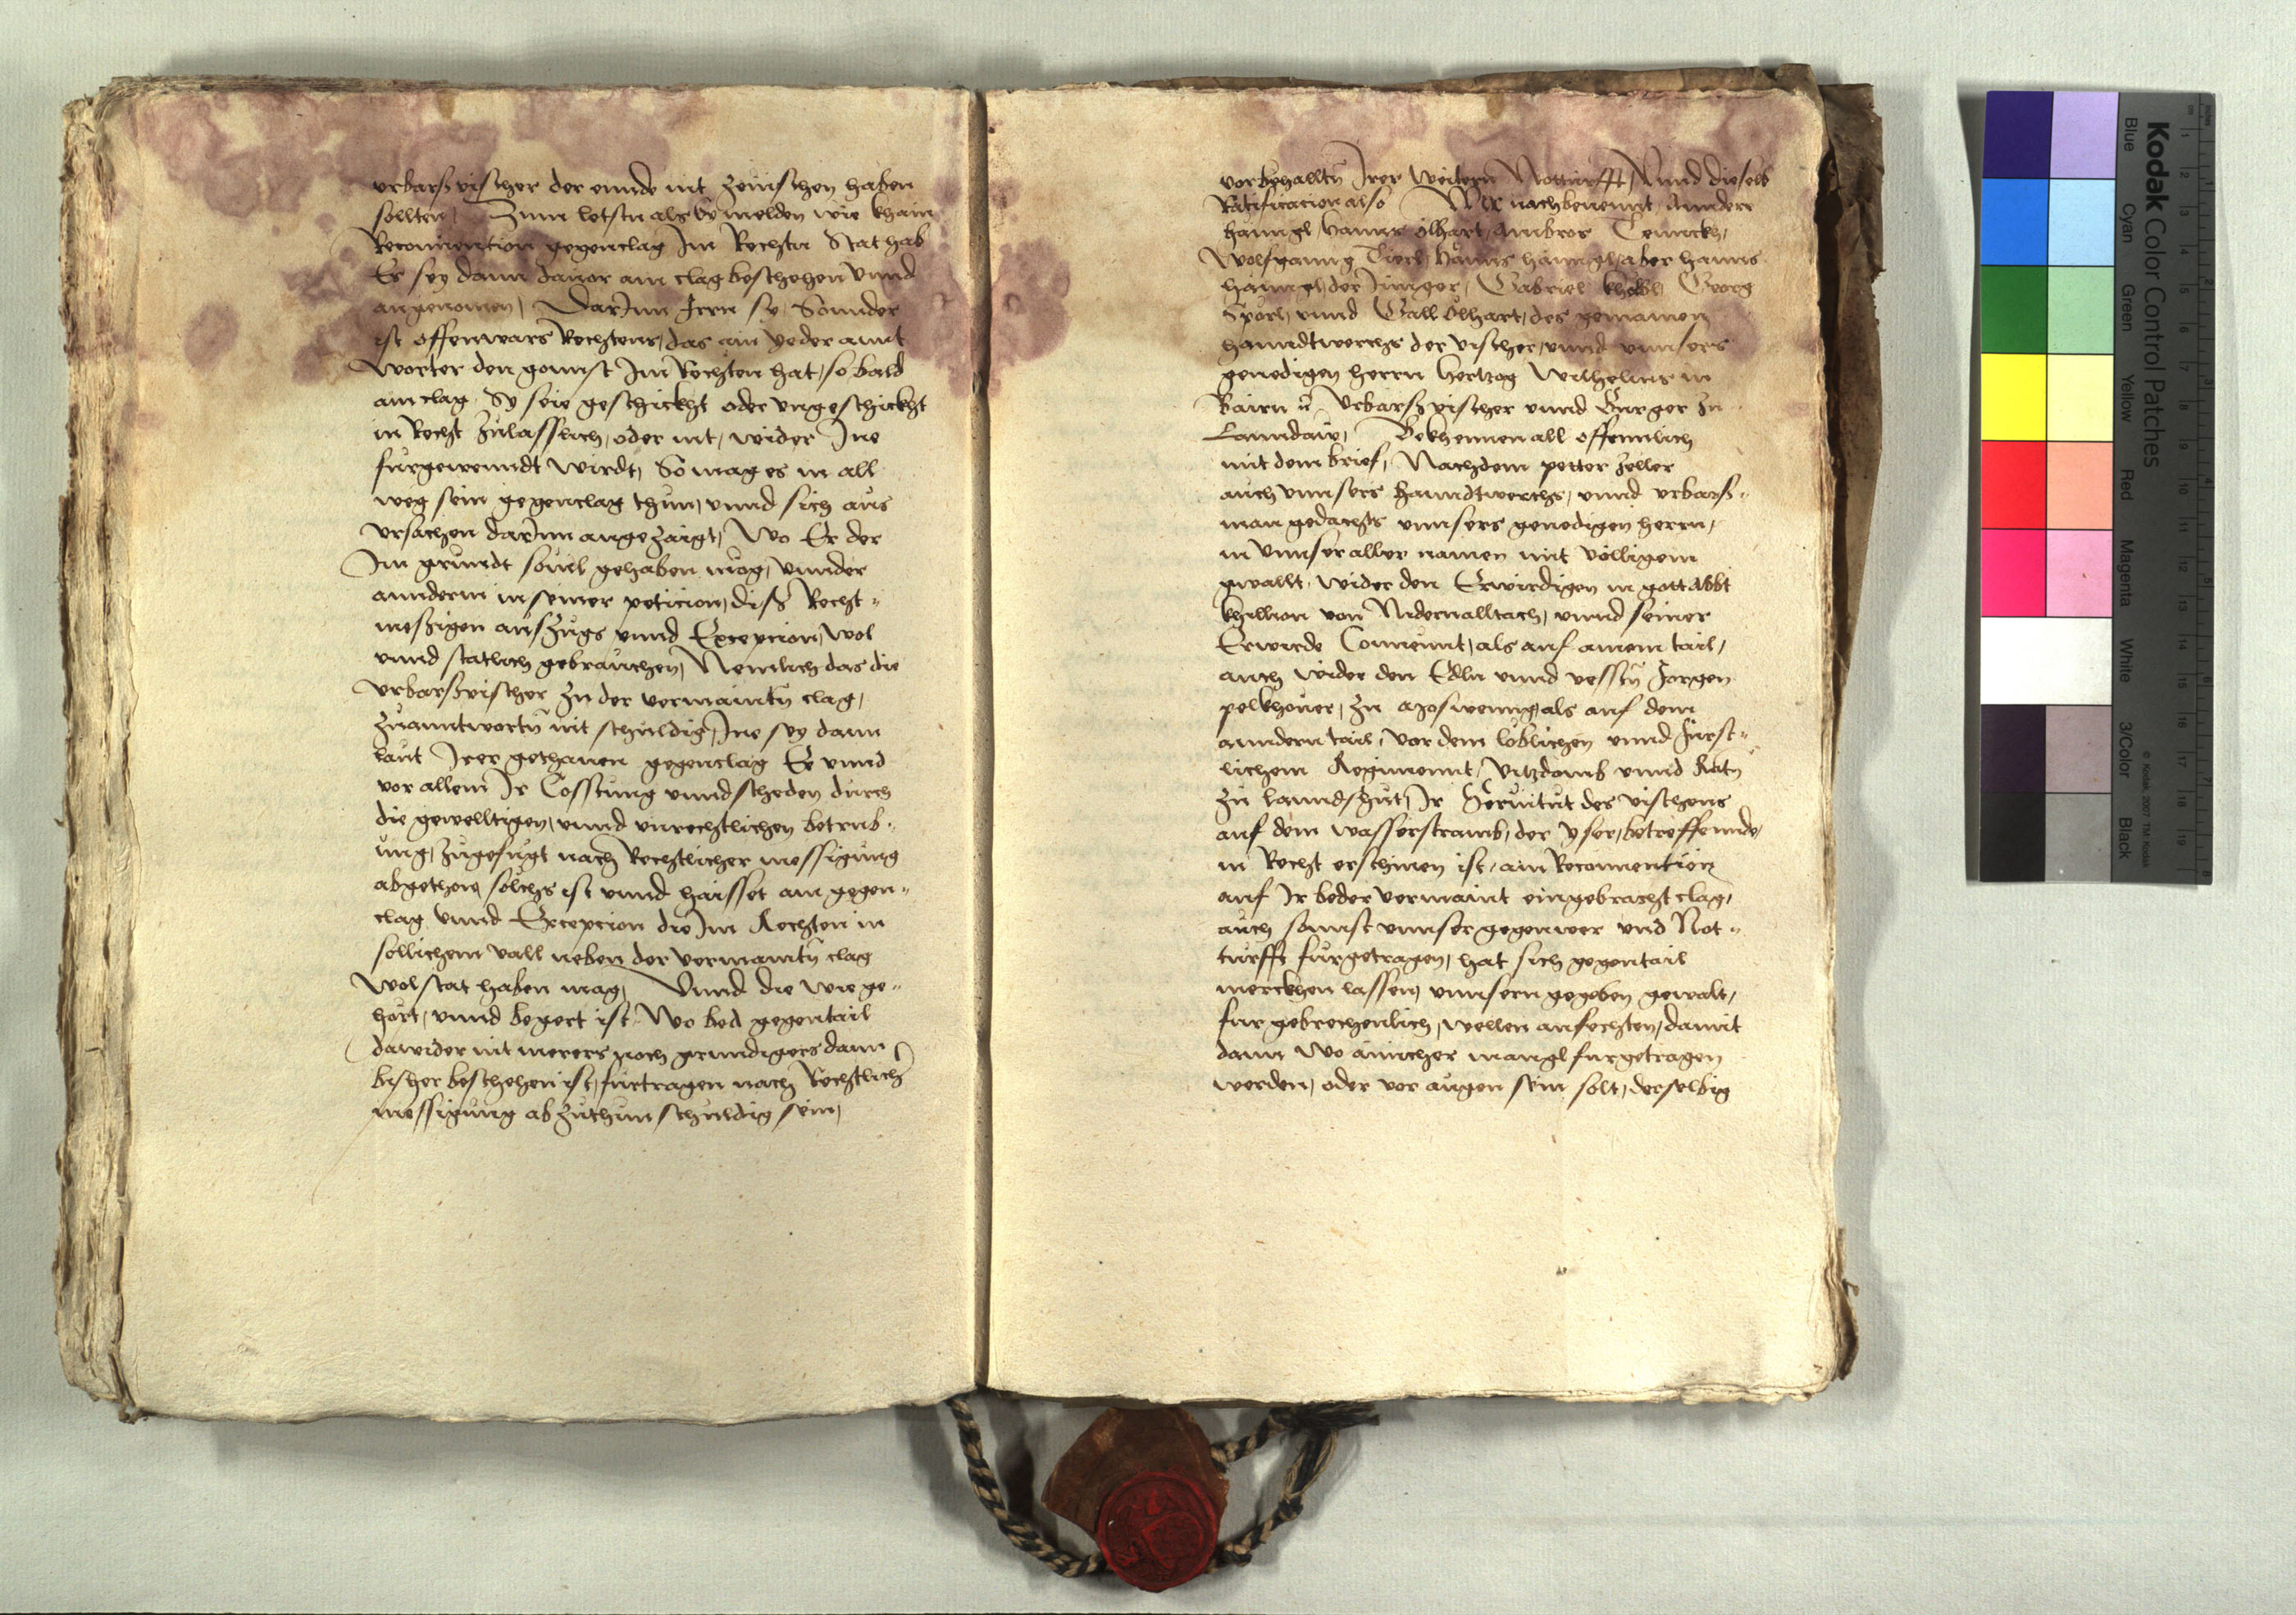 vrbarßvischer der ennde nit zeuischen haben
sollten, Zum letsten als sy melden wie khain
Reconuention gegenclag Im Rechten Stat hab
Es sey dann dauor ain clag beschehen vnnd
angenomen, Darinn Irrn sy, Sonnder
ist offenwars Rechtens, das ain yeder annt
worter den gonnst Im Rechten hat, so bald
ain clag Sy seie geschickht oder vngeschickht
in Recht zulasslich, oder nit, wider Ine
furgewenndt wirdt, So mag es in all
weg sein gegenclag thun, vnnd sich aus
vrsachen darinn angezaigt, Wo Er der
Im grundt souil gehaben mog, vnnder
annderm in seiner peticion, diß Recht-
messigen auszugs vnnd Excepcion, wol
vnnd statlich gebrauchen, Nemlich das die
vrbarßvischer zu der vermainten clag,
zuanntworten nit schuldig, Ine sey dann
laut Irer gethanen gegenclag Er vnnd
vor allem Ir Cosstung vnnd scheden durch
die gewelltigen, vnnd vnrechtlichen betrub-
ung, zugefugt nach Rechtlicher messigung
abgethon, solchs ist vnnd haisset ain gegen-
clag vnnd Excepcion die Im Rechten in
sollichem vall neben der vermainten clag
wol stat haben mag, Vnnd die wie ge-
hort, vnnd begert ist Wo bed gegentail
dawider nit merers noch grundigers dann
bisher beschehen ist, furtragen nach Rechtlich
messigung abzuthun schuldig sein,
vorbehalltn Irer weitern Notturfft, Vnnd dieselb
Ratification also Wir nachbenennt, Anndere
hanngl, Hanns ölhart, Ambros
Wolfganng Hanns hanngl, aber hanns
hanngl, der Junger, Gabriel Georg
Spörl, vnnd Gall ölhart, des gemainen
hanndtwerchs der vischer, vnnd vnnsers
genedigen herrn Hertzog Wilhelms in
Bairn vrbarßvischer vnnd Burger zu
Lanndaw, Bekhennen all offennlich
mit dem brief, Nachdem petter zeller
auch vnnsers hanndtwerchs, vnnd vrbarß-
man gedachts vnnsers genedigen herrn,
in vnnser aller namen mit völligem
gwallt, wider den Erwirdigen in gott Abbt
Khillion von Nidernalltach, vnnd seiner
Erwirde Conuennt, als auf ainem tail,
auch wider den Edln vnnd vesstn Jorgen
pelkhouer, zu Moswenng, als auf dem
anndern tail, vor dem loblichen vnnd Furst-
lichem Regimennt, Vitzdomb vnnd Ratn
zu lanndshut, Ir Seruitut des vischens
auf dem wasserstramb, der yser, betreffennde,
in Recht erschinen ist, ain Reconuention
auf Ir beder vermaint eingebracht clag,
auch sonnst vnnser gegenwer vnd Not-
turfft furgetragen, hat sich gegentail
merckhen lassen, vnnsern gegeben gewalt,
fur gebrechenlich, wellen anfechten, damit
dann wo ainicher mangl furgetragen
werden, oder vor augen sein solt, derselbig
Kodak Color Control Patches
Blue
Cyan
Green
Yellow
Red
Magenta
White
3/Color
Black
© Kodak, 2007 TM: Kodak